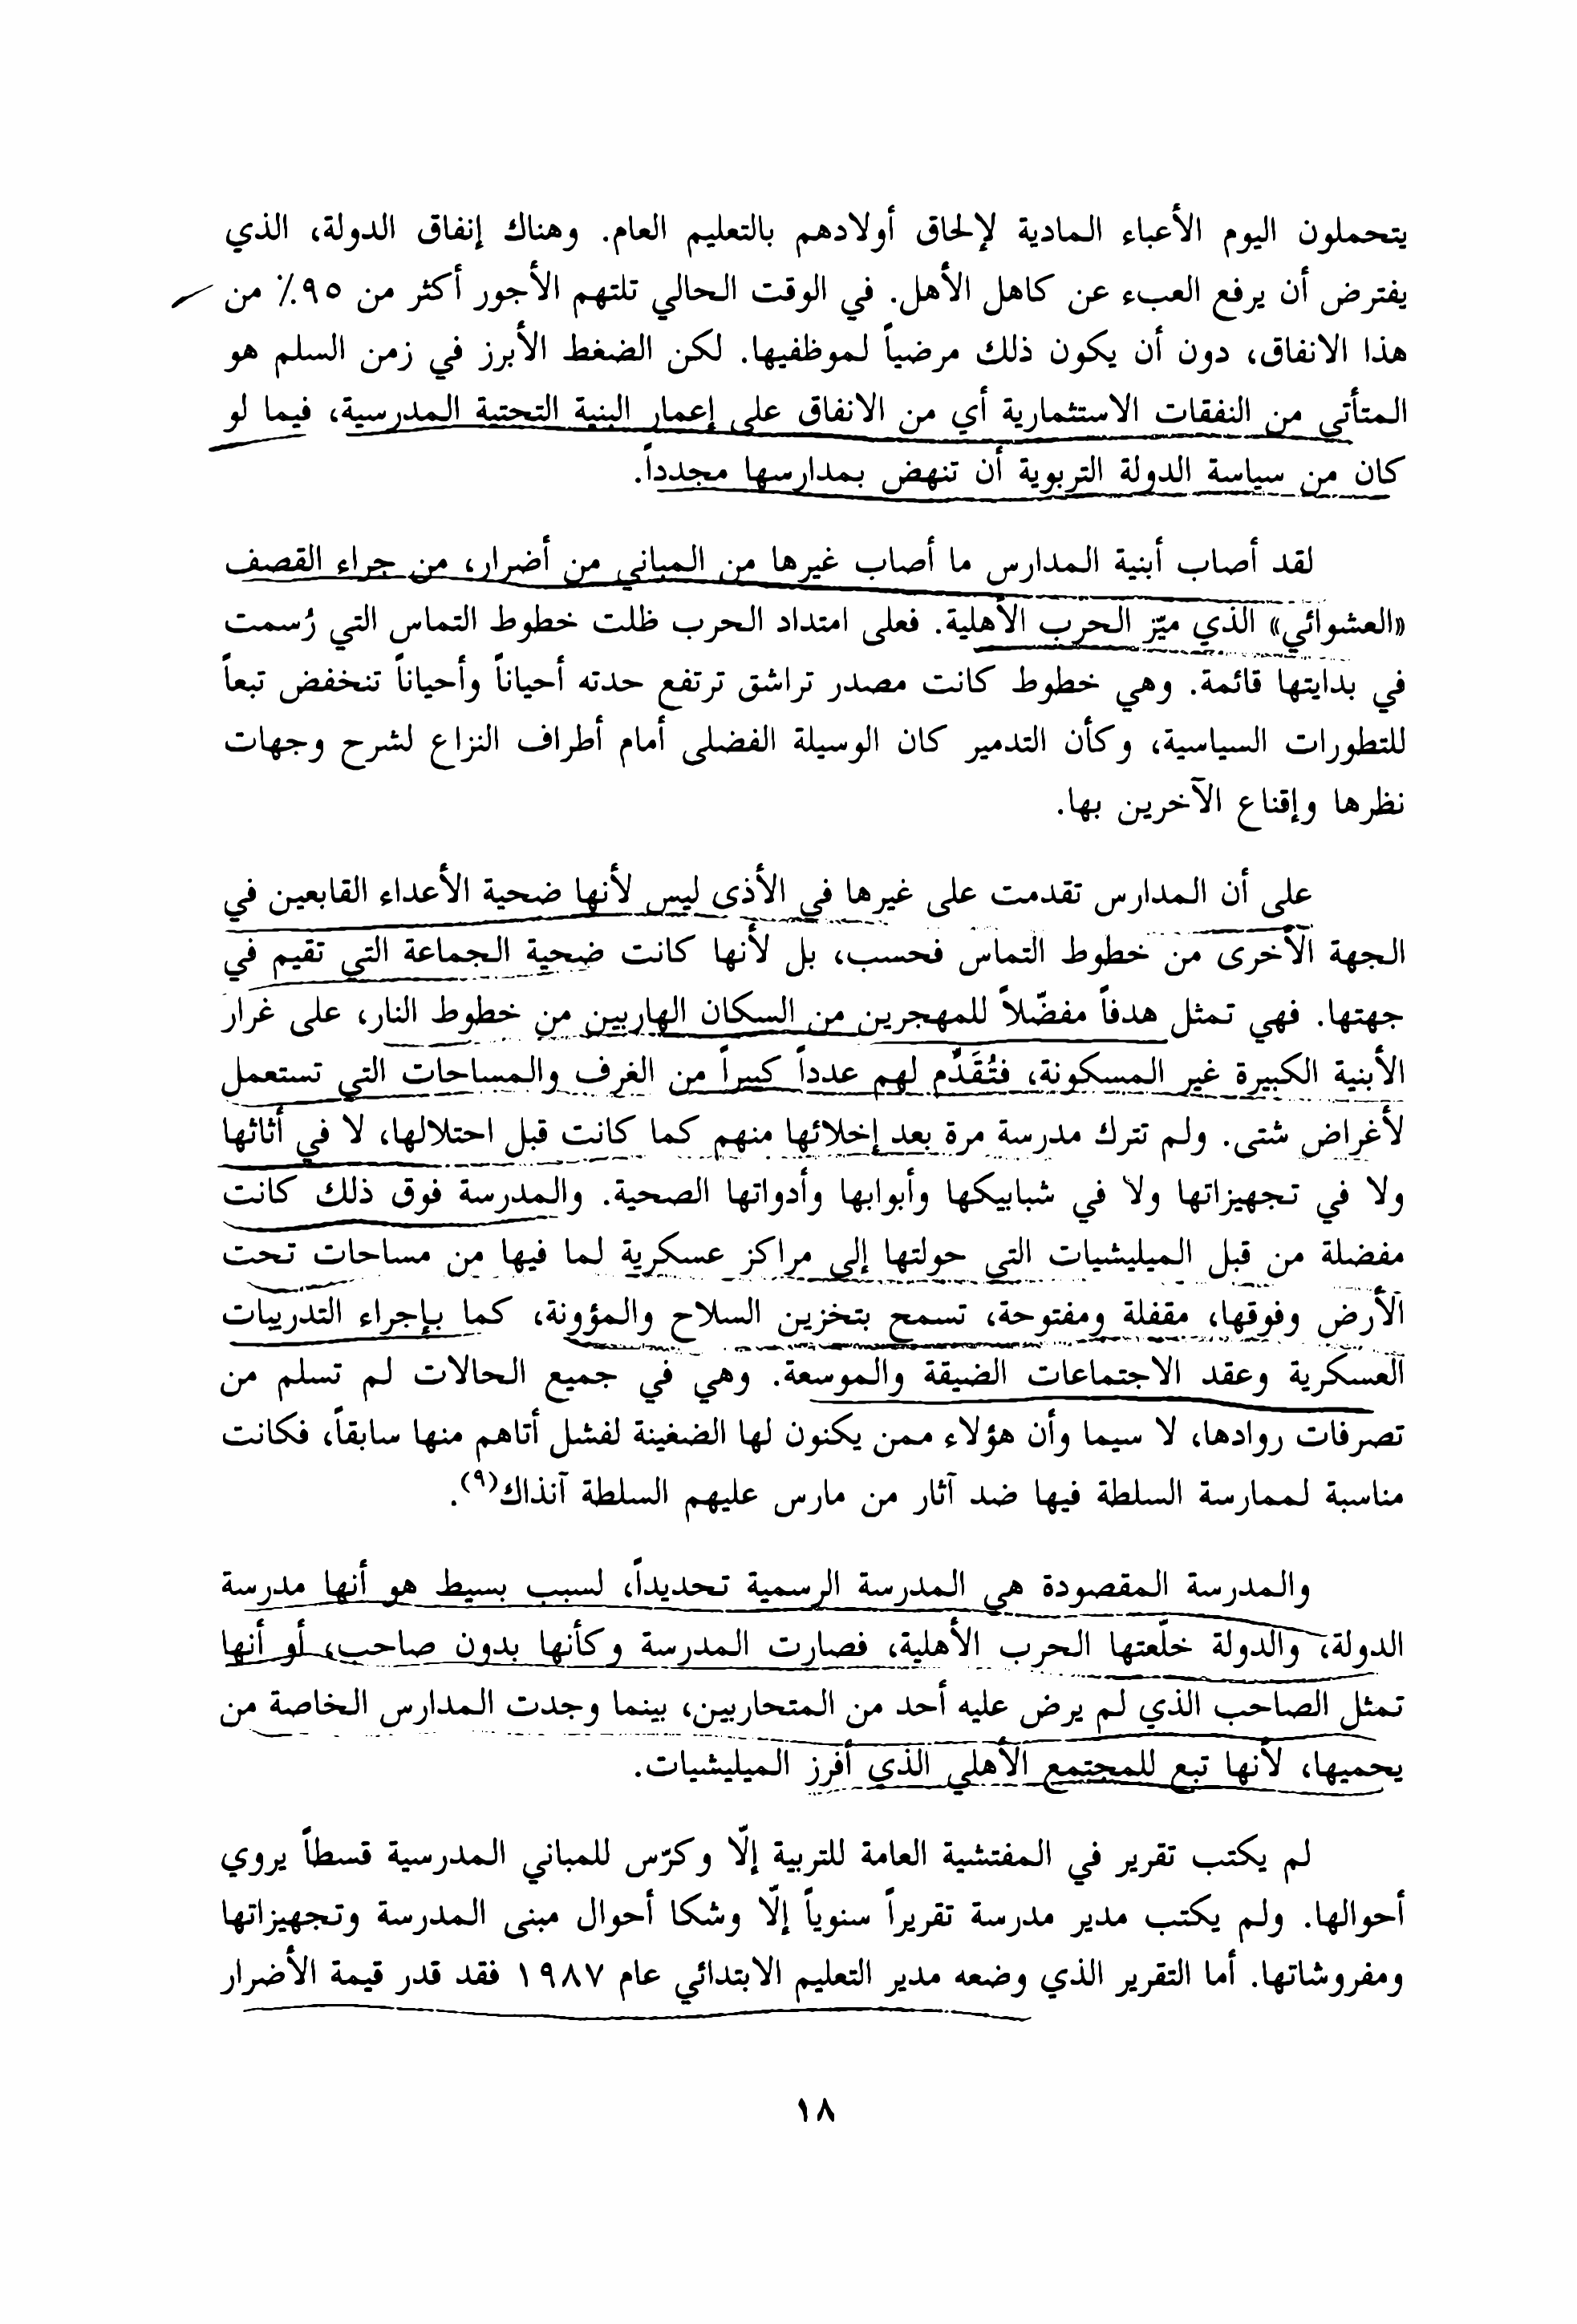 يتحملون اليوم الأعباء المادية لإلحاق أولادهم بالتعليم العام. وهناك إنفاق الدولة، الذي
يفترض أن يرفع العبء عن كاهل الأهل. في الوقت الحالي تلتهم الأجور أكثر من ٩٥٪ من
هذا الانفاق، دون أن يكون ذلك مرضياً لموظفيها. لكن الضغط الأبرز في زمن السلم هو
المتأتي من النفقات الاستثمارية أي من الانفاق على إعمار البنية التحتية المدرسية، فيما لو
كان من سياسة الدولة التربوية أن تنهض بمدارسها مجدداً.
لقد أصاب أبنية المدارس ما أصاب غيرها من المباني من أضرار، من جراء القصف
«العشوائي» الذي ميّز الحرب الأهلية. فعلى امتداد الحرب ظلت خطوط التماس التي رُسمت
في بدايتها قائمة. وهي خطوط كانت مصدر تراشق ترتفع حدته أحياناً وأحياناً تنخفض تبعاً
للتطورات السياسية، وكأن التدمير كان الوسيلة الفضلى أمام أطراف النزاع لشرح وجهات
نظرها وإقناع الآخرين بها.
على أن المدارس تقدمت على غيرها في الأذى ليس لأنها ضحية الأعداء القابعين في
الجهة الآخرى من خطوط التماس فحسب، بل لأنها كانت ضحية الجماعة التي تقيم في
جهتها. فهي تمثل هدفاً مفضّلاً للمهجرين من السكان الهاربين من خطوط النار، على غرار
الأبنية الكبيرة غير المسكونة، فتُقَدَّم لهم عدداً كبيراً من الغرف والمساحات التي تستعمل
لأغراض شتى. ولم تترك مدرسة مرة بعد إخلائها منهم كما كانت قبل احتلالها، لا في أثاثها
ولا في تجهيزاتها ولا في شبابيكها وأبوابها وأدواتها الصحية. والمدرسة فوق ذلك كانت
مفضلة من قبل الميليشيات التي حولتها إلى مراكز عسكرية لما فيها من مساحات تحت
الأرض وفوقها، مقفلة ومفتوحة، تسمح بتخزين السلاح والمؤونة، كما بإجراء التدريبات
العسكرية وعقد الاجتماعات الضيقة والموسعة. وهي في جميع الحالات لم تسلم من
تصرفات روادها، لا سيما وأن هؤلاء ممن يكنون لها الضغينة لفشل أتاهم منها سابقاً، فكانت
مناسبة لممارسة السلطة فيها ضد آثار من مارس عليهم السلطة آنذاك(٩).
والمدرسة المقصودة هي المدرسة الرسمية تحديداً، لسبب بسيط هو أنها مدرسة
الدولة، والدولة خلّعتها الحرب الأهلية، فصارت المدرسة وكأنها بدون صاحب، أو أنها
تمثل الصاحب الذي لم يرض عليه أحد من المتحاربين، بينما وجدت المدارس الخاصة من
يحميها، لأنها تبع للمجتمع الأهلي الذي أفرز الميليشيات.
لم يكتب تقرير في المفتشية العامة للتربية إلّا وكرّس للمباني المدرسية قسطاً يروي
أحوالها. ولم يكتب مدير مدرسة تقريراً سنوياً إلّا وشكا أحوال مبنى المدرسة وتجهيزاتها
ومفروشاتها. أما التقرير الذي وضعه مدير التعليم الابتدائي عام ١٩٨٧ فقد قدر قيمة الأضرار
١٨